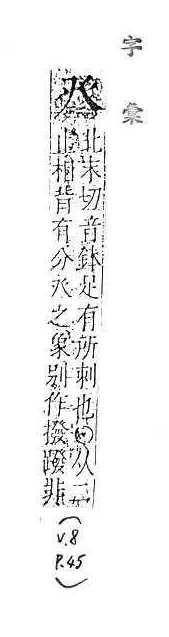 字彙
癶
北末切音鉢足有所刺也从二
止相背有分癶之象別作撥蹳非
(V.8
P.45)